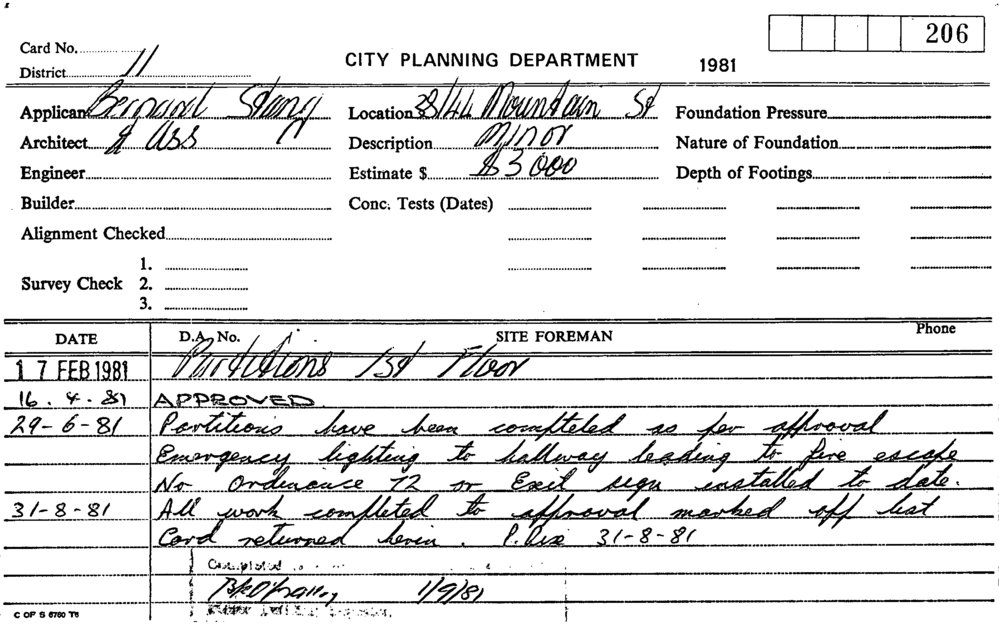 206
Card No. 11
District
CITY PLANNING DEPARTMENT 1981
Applicant Bernard Stang Location 38/44 Mountain St Foundation Pressure
Architect & Ass Description Minor Nature of Foundation
Engineer Estimate $ $3 000 Depth of Footings
Builder Conc. Tests (Dates)
Alignment Checked
1.
Survey Check 2.
3.
DATE D.A. No. SITE FOREMAN Phone
17 FEB 1981 Partitions 1st Floor
16.4.81 APPROVED
29-6-81 Partitions have been completed as per approval
Emergency lighting to hallway leading to fire escape
No Ordinance 72 or Exit sign installed to date.
31-8-81 All work completed to approval marked off list
Card returned herin. P. 31-8-81
Completed
1/9/81
C OF S 6760 T6